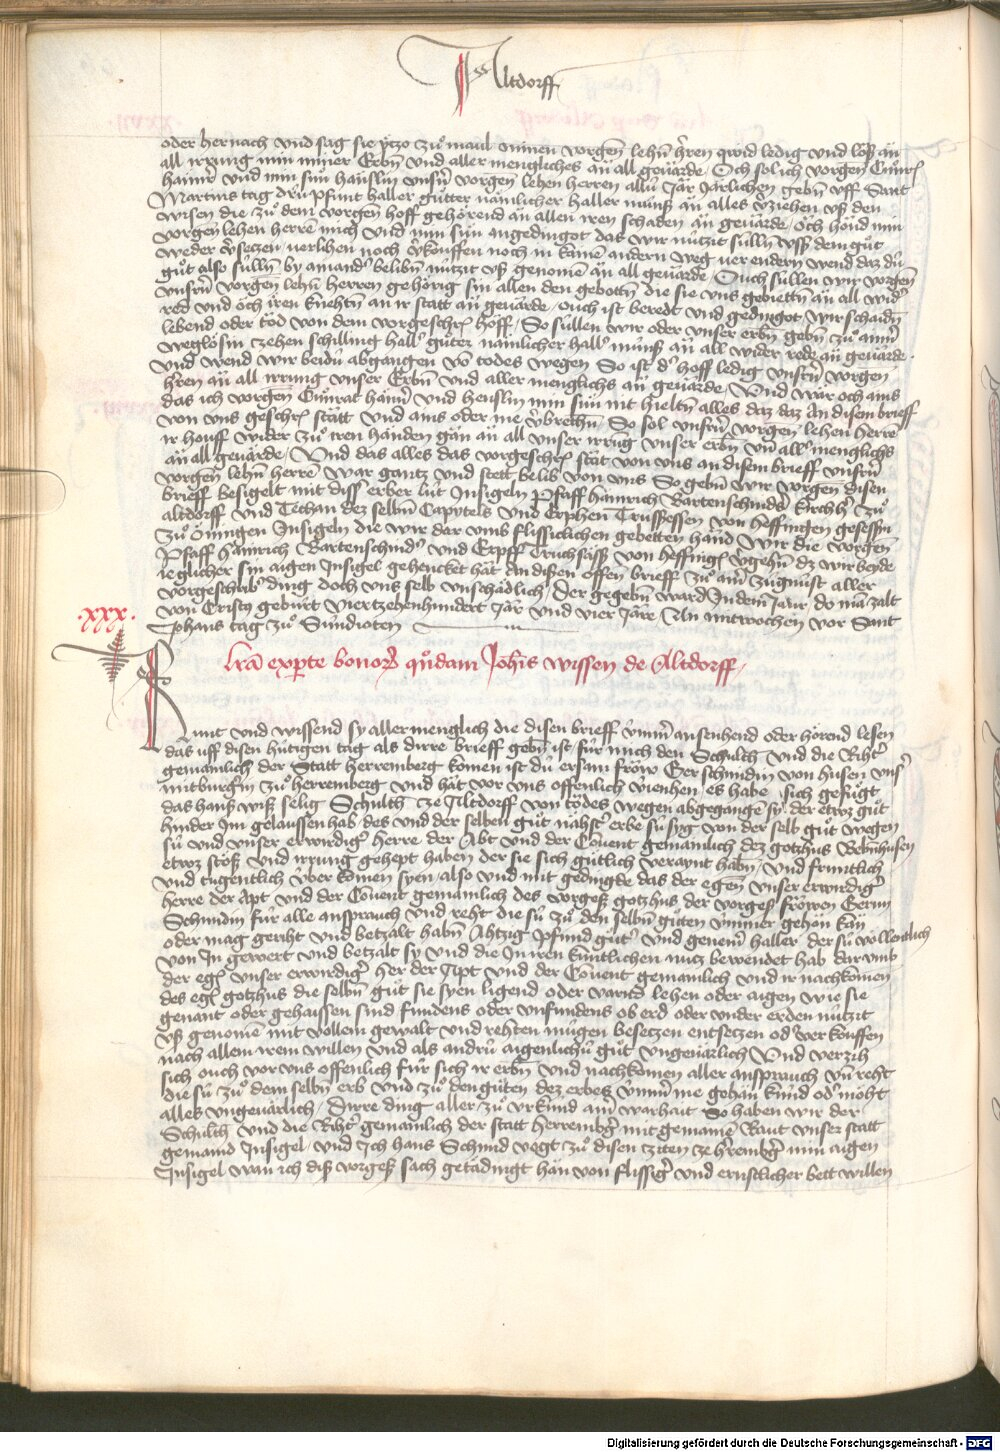 Altdorff
oder hernach und sag sie yetzo zů maul minen vorgen lehn hren quid ledig und loß än
all irrung min miner Erbn und aller mengliches än all geuärde Och sol ich vorgen Cůnr
hainrr und min sun häuslin unsrn vorgen lehen herren allü Jär Järlichen gebn uff Sant
Martins tag drü pfunt haller gůtter nämlicher haller münß än alles verziehen uß den
wisen die zů dem vorgen hoff gehörend än allen iren schaden än geuärde Och hönd min
vorgen lehen herre mich und min sün angedingot das wir nützit sülln uß dem gůt
weder versetzen verlihen noch verkouffen noch in kainen andern weg verendern wend daz dü
gůt also sülln by ainandr belibn nützit uß genomen än all geuärde Ouch süllen wir vorgen
unsrn vorgen lehn herren gehörig sin allen den gebottn die sie uns gebiettn än all widr
red und och iren knehtn an ir statt än geuärde ouch ist beredt und gedingot wir schaidn
lebend oder töd von dem vorgeschr hoff So süllen wir oder unser erbn gebn zů aim
weglösin zehen schilling hallr gůter nämlicher hallr münß än all wider rede än geuärde
und wend wir beidü abgangen von todes wegen So ist dr hoff ledig unsrn vorgen
hren än all irrung unser Erbn und aller menglichs än geuärde Und wär och ains
das ich vorgen Cůnrat hainrr und henslin min sün nit hieltn alles daz daz an disen brieff
von uns geschr stätt und ains oder me verbrechn So sol unsrn vorgen lehen herre
ir houff wider zů iren handen gän än all unser irrug unser erbn un allr menglichs
än all geuärde Und das alles das vorgeschr stät von uns an disem brieff unsrn
vorgen lehn herre war gantz und stett belib von uns So gebn wir vorgen disen
brieff besigelt mit diss erber lüt Insigeln Pfaff hainrich Bartenschinder kirchhr zů
altdorff und Techan dez selbn Capytels und Erphen Trussessen von heffingen gesessn
zů Öningen Insigeln die wir dar umb flissiclichen gebetten händ Wir die vorgen
Pfaff hainrich Bartenschindr und Erpff Truchsäß von heffing verjehn dz wir beyde
ieglicher sin aigen Insigel gehencket hät an dissen offen brieff zů aim zügnüst aller
vorgeschribr ding doch uns selb unschädlich Der gegebn ward In dem Jaur do man zalt
von Cristz geburt viertzehenhundert Jär und vier Järe An mitwochen vor Sant
Johans tag zů Sundioten
·xxx·
Lra experte bonor quondam Johis wissen de Altdorff
Kunt und wissend sy aller menglich die disen brieff ymmr ansenhend oder hörend lesen
das uff disen hütigen tag als dirre brieff gebn ist für mich den Schulth und die Rihtr
gemainlich der Statt herremberg komen ist dü ersam fröw Ger schmidin von husen unsr
mitburgrin zů herremberg und hät vor uns offenlich vienhen es habe sich gefügt
das hanß wiß selig Schulth ze Altdorff von tödes wegen abgegangen sy der etwz gůt
hinder im gelaussen hab des und der selben gůt nähstr erbe sü syg von der selb gůt wegen
sü und unser erwirdigr herre der Abt und der Convent gemainlich dez gotzhus Bebnhusen
etwz stöß und irrung gehept haben der sie sich gütlich veraynt habn und früntlich
und tugentlich über komen syen also und mit gedingde das der egen unser erwirdigr
herre der Apt und der Convent gemainlich des vorgeß gotzhus der vorgeß fröwen Gerun
Schmidin für alle ansprauch und reht die sü zů den selbn gůten ymmer gehän kän
oder mag geriht und betzalt habn Ahtzig pfund gůtr und genemr haller der sü vollenclich
von In gewert und betzalt sy und die In iren kuntlichen nutz bewendet hab dar umb
der eg unser erwirdigr her der Apt und der Convent gemainlich und ir nachkomen
des eg gotzhus die selbn gůt sie syen ligend oder varnd lehen oder aigen wie sie
genant oder gehaissen sind fundens oder unfundens ob erd oder under erden nützit
uß genomen mit vollem gewalt und rehten mügen besetzen entsetzen odr verkouffen
nach allem irem willen und als andrü aigenlichü gůt ungeuärlich Und verzih
sich ouch vor uns offenlich für sich ir erbn und nachkomen aller ansprauch un reht
die sü zů dem selbn erb und zů den gůten dez erbes ymmr me gehän kund odr möht
alles ungeuärlich Dirre ding aller zů urkund aim warhait So haben wir der
Schulth und die Rihtr gemainlich der statt herrembg mit gemaine Raut unser statt
gemaind Insigel und Ich hans Schmid vogt zů disen ziten ze hrembg min aigen
Insigel wan ich diß vorgeß sach getädingt hän von flissigr und ernstlicher bett willen
Digitalisierung gefördert durch die Deutsche Forschungsgemeinschaft - DFG